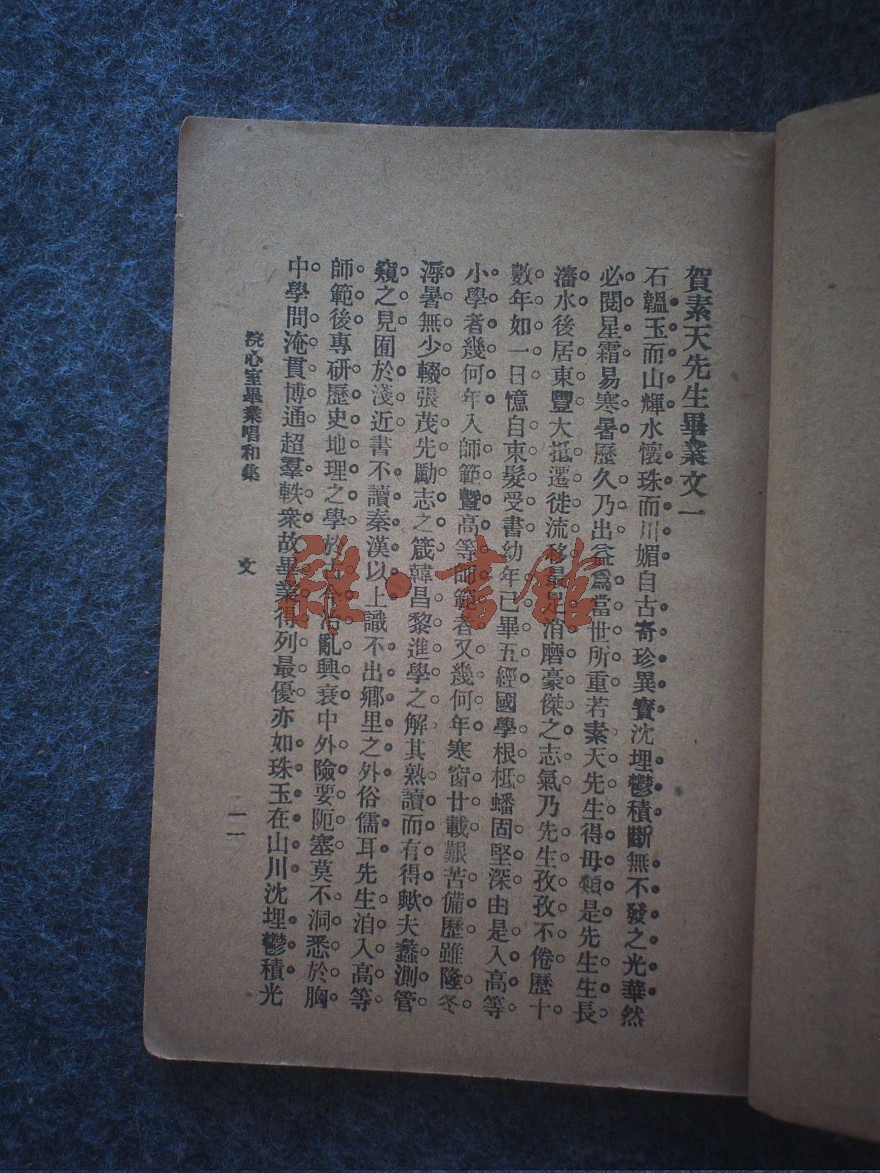 賀素天先生畢業文一
石韞玉而山輝水懷珠而川媚自古奇珍異寶沈埋鬱積斷無不發之光華然
必閱星霜易寒暑歷久乃出益爲當世所重若素天先生得毋類是先生生長
瀋水後居東豐大抵遷徙流移最足消磨豪傑之志氣乃先生孜孜不倦歷十
數年如一日憶自束髮受書幼年已畢五經國學根柢蟠固堅深由是入高等
小學者幾何年入師範曁高等師範者又幾何年寒窗廿載艱苦備歷雖隆冬
溽暑無少輟張茂先勵志之箴韓昌黎進學之解其熟讀而有得歟夫蠡測管
窺之見囿於淺近書不讀秦漢以上識不出鄉里之外俗儒耳先生泊入高等
師範後專研歷史地理之學於古今治亂興衰中外險要阨塞莫不洞悉於胸
中學問淹貫博通超羣軼衆故畢業得列最優亦如珠玉在山川沈埋鬱積光
浣心室畢業唱和集 文 一一
雜·書館